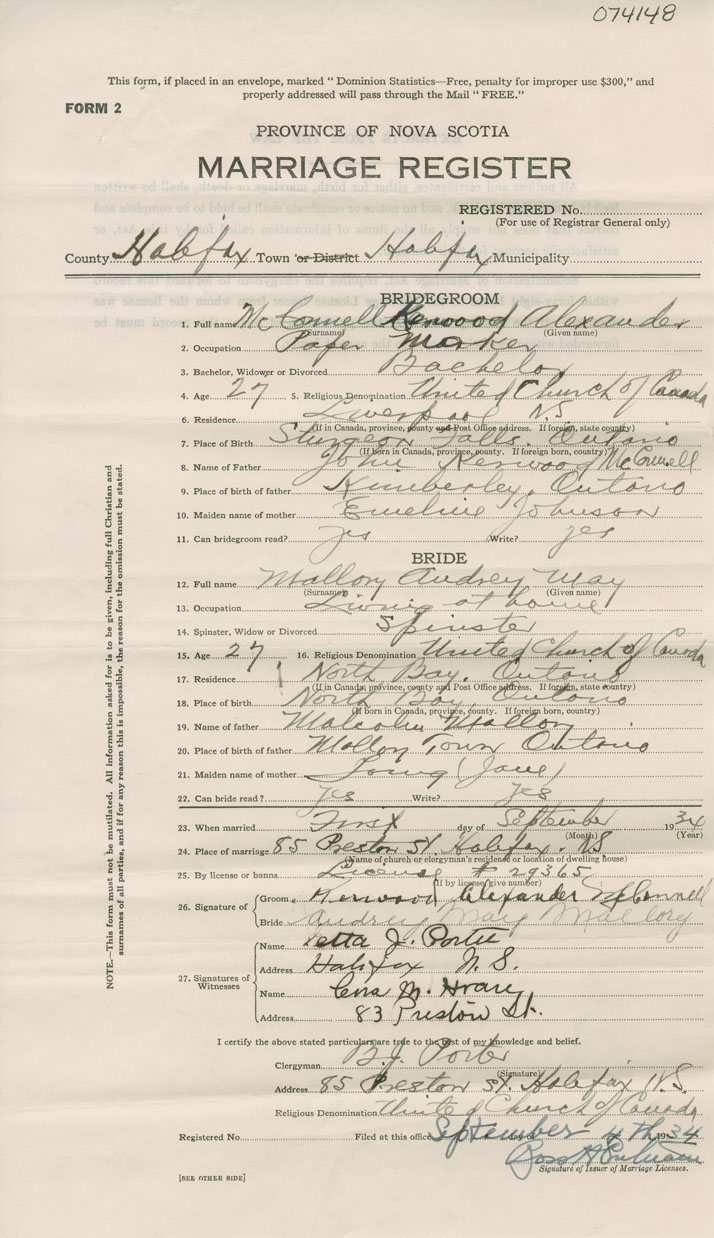 074148
This form, if placed in an envelope, marked “ Dominion Statistics—Free, penalty for improper use $300,” and
properly addressed will pass through the Mail “ FREE.”
FORM 2
PROVINCE OF NOVA SCOTIA
MARRIAGE REGISTER
REGISTERED No.
(For use of Registrar General only)
County Halifax Town or District Halifax Municipality
BRIDEGROOM
1. Full name McConnell Kenwood Alexander
(Surname) (Given name)
2. Occupation Paper Maker
3. Bachelor, Widower or Divorced Bachelor
4. Age 27 5. Religious Denomination United Church of Canada
6. Residence Liverpool N.S.
(If in Canada, province, county and Post Office address. If foreign, state country)
7. Place of Birth Sturgeon Falls. Ontario
(If born in Canada, province, county. If foreign born, country)
8. Name of Father John Kenwood McConnell
9. Place of birth of father Kimberley, Ontario
10. Maiden name of mother Emeline Johnson
11. Can bridegroom read? yes Write? yes
BRIDE
12. Full name Mallory Audrey May
(Surname) (Given name)
13. Occupation Living at home
14. Spinster, Widow or Divorced Spinster
15. Age 27 16. Religious Denomination United Church of Canada
17. Residence North Bay. Ontario
(If in Canada, province, county and Post Office address. If foreign, state country)
18. Place of birth North Bay, Ontario
(If born in Canada, province, county. If foreign born, country)
19. Name of father Malcolm Mallory
20. Place of birth of father Mallory Town Ontario
21. Maiden name of mother (Jane)
22. Can bride read? yes Write? yes
23. When married First day of September 1934
(Month) (Year)
24. Place of marriage 85 Preston St. Halifax. NS
(Name of church or clergyman's residence or location of dwelling house)
25. By license or banns License # 29365
(If by license, give number)
26. Signature of Groom Kenwood Alexander McConnell
Bride Audrey May Mallory
27. Signatures of Witnesses
Name etta J. Porter
Address Halifax N. S.
Name M.
Address 83 Preston St.
I certify the above stated particulars are true to the best of my knowledge and belief.
Clergyman B.J. Porter
(Signature)
Address 85 Preston St. Halifax N.S.
Religious Denomination United Church of Canada
Registered No. Filed at this office September day of 4th 1934
Ross H
Signature of Issuer of Marriage Licenses.
[SEE OTHER SIDE]
NOTE.—This form must not be mutilated. All information asked for is to be given, including full Christian and
surnames of all parties, and if for any reason this is impossible, the reason for the omission must be stated.